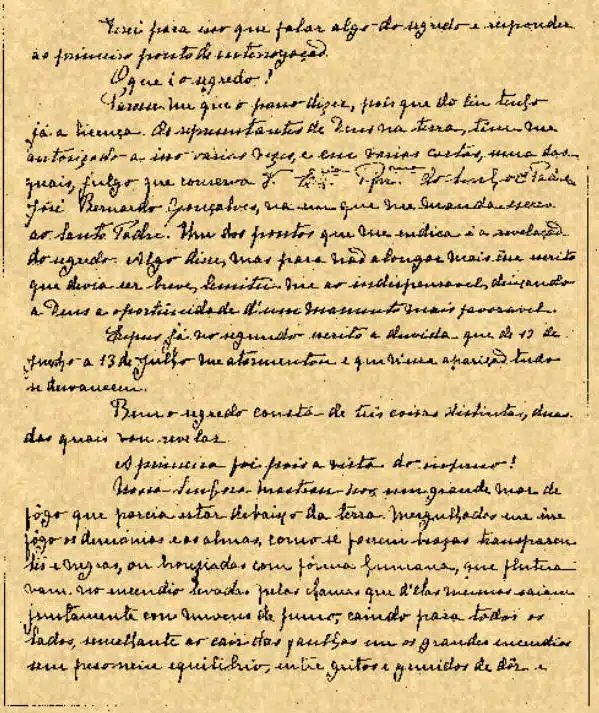 Terei para isso que falar algo do segredo e responder
ao primeiro ponto de interrogação.
O que é o segredo?
Parece-me que o posso dizer, pois que do Céu tenho
já a licença. Os representantes de Deus na terra, têm-me
autorizado a isso varias vezes, e em varias cartas, uma das
quais, julgo que conserva V. do Senhor Padre
José Bernardo Gonçalves, na em que me manda escrever
ao Santo Padre. Um dos pontos que me indica é a revelação
do segredo. Algo disse, mas para não alongar mais esse escrito
que devia ser breve, limitei-me ao indispensavel, deixando
a Deus a oportunidade d'um momento mais favoravel.
Expus já no segundo escrito a duvida que de 13 de
Junho a 13 de Julho me atormentou e que n'essa aparição tudo
se desvaneceu.
Bem o segredo consta de três coisas distintas, duas
das quais vou revelar.
A primeira foi pois a vista do inferno!
Nossa Senhora mostrou-nos um grande mar de
fôgo que parcia estar debaixo da terra. Mergulhados em êsse
fôgo os demónios e as almas, como se fossem brasas transparen-
tes e negras, ou bronziadas com fórma humana, que flutua-
vam no incendio levadas pelas chamas que d'elas mesmas saiam
juntamente com nuvens de fumo, caindo para todos os
lados, semelhante ao cair das faulhas em os grandes incendios
sem peso nem equilibrio, entre gritos e gemidos de dôr e